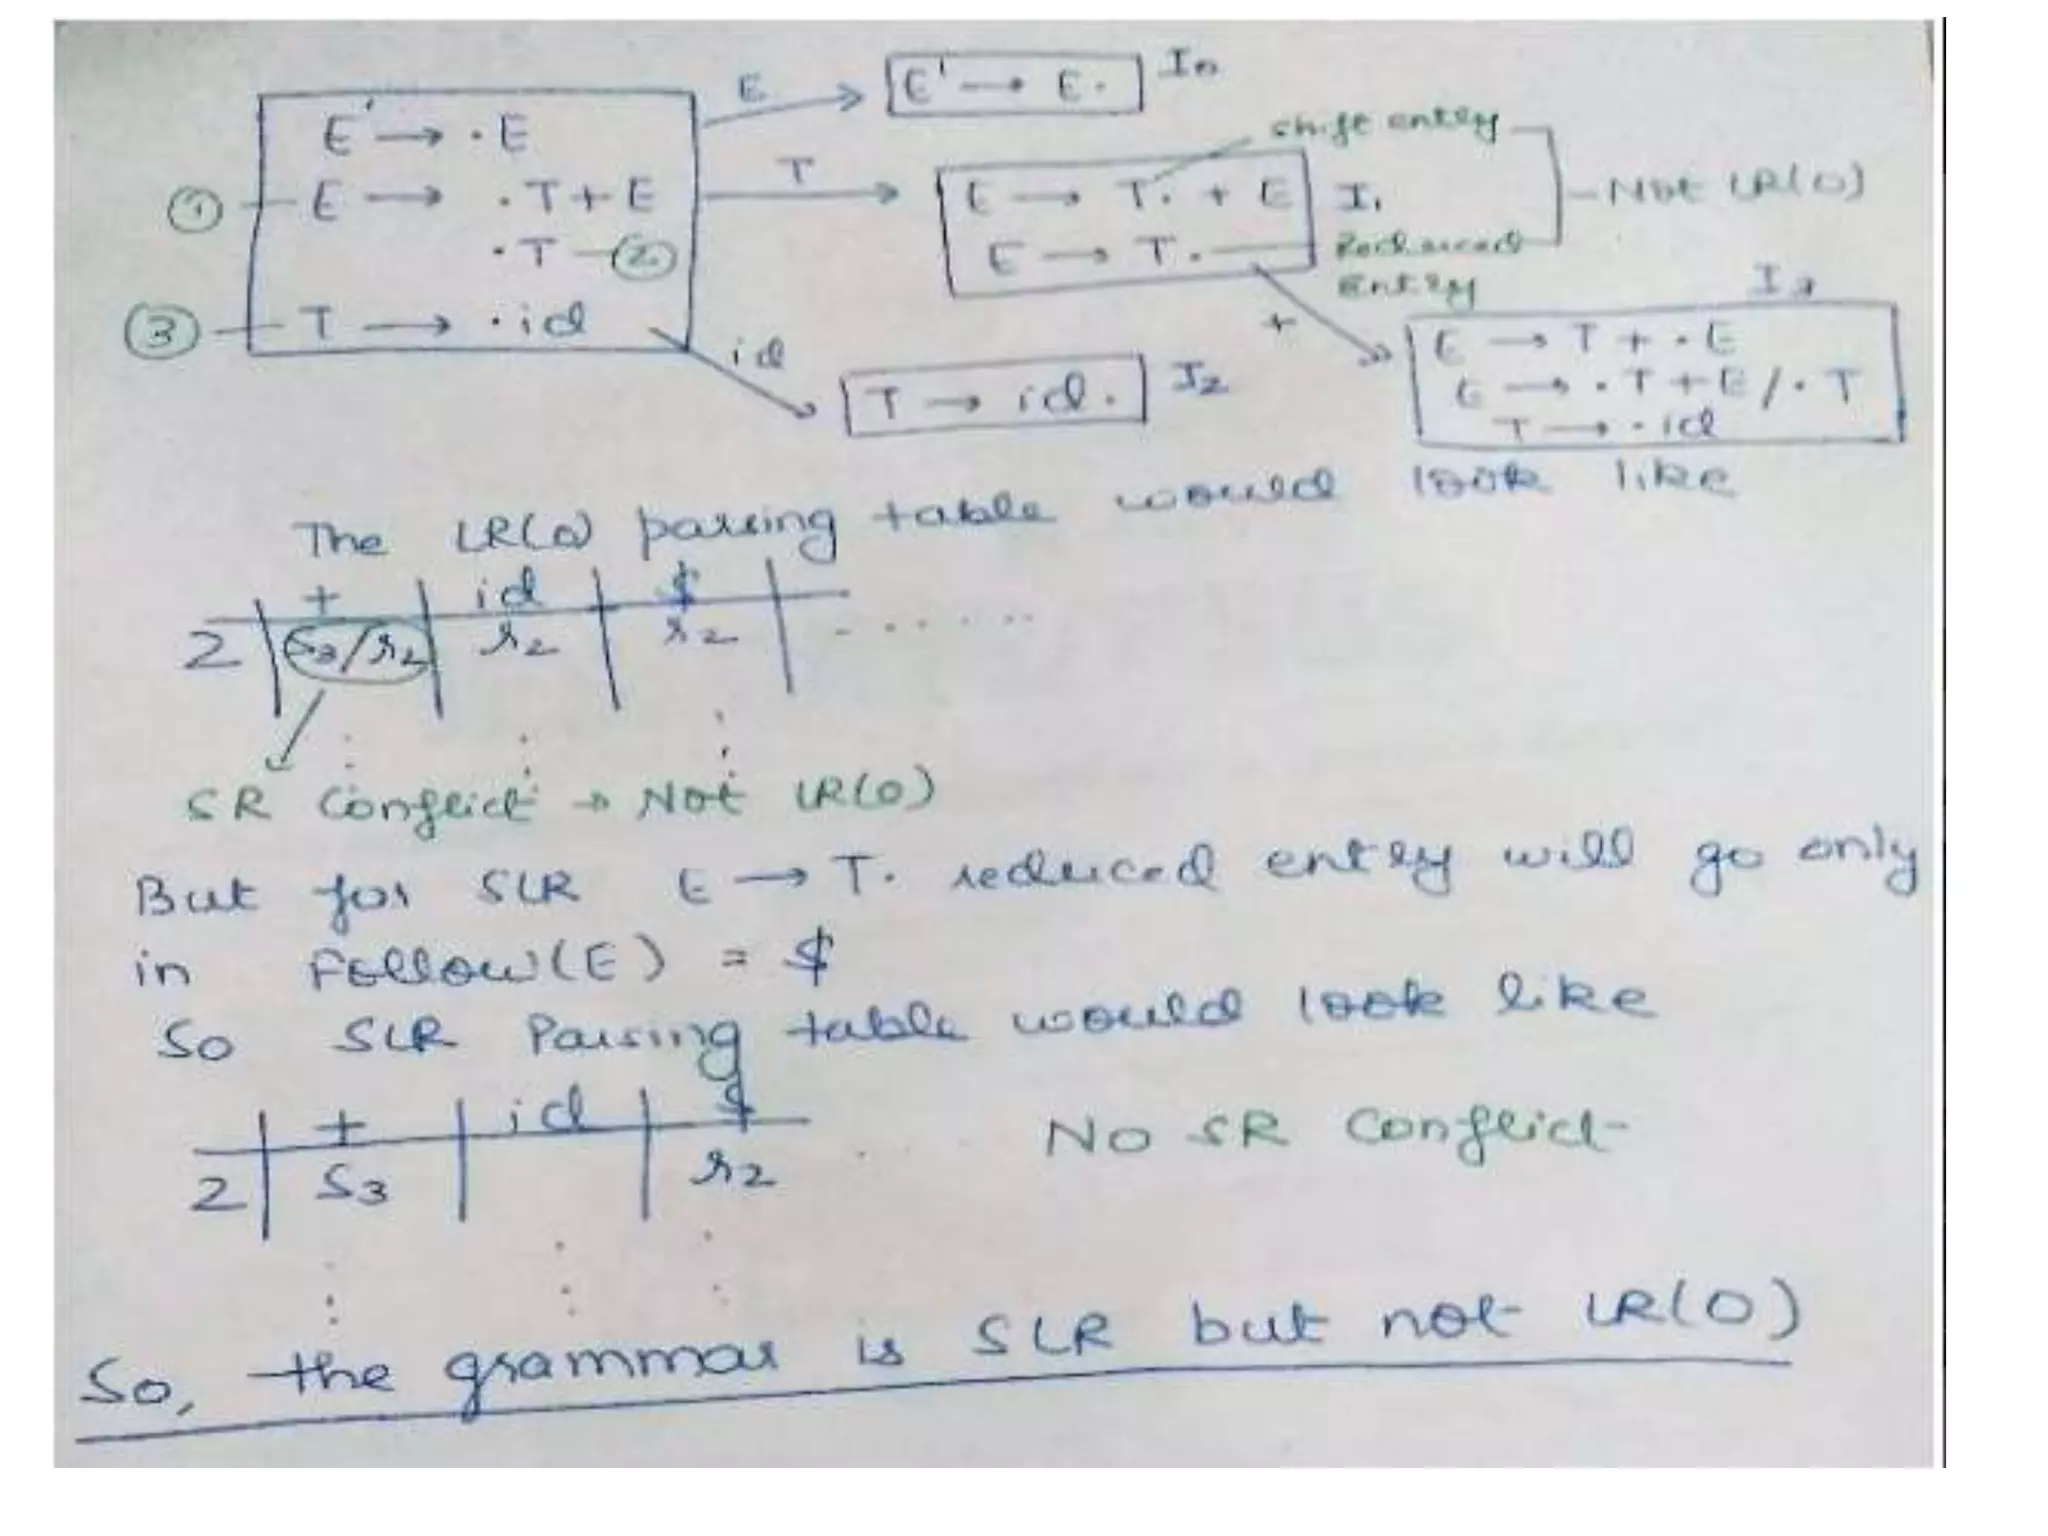 E' → E. I0
E
E' → .E
shift entry
① E → .T+E
T
E → T. + E I1
Not LR(0)
.T ②
E → T.
Reduced
Entry
③ T → .id
id
+
I3
E → T + .E
E → .T+E/.T
T → .id
T → id. I2
The LR(0) parsing table would look like
+ id $
2 S3/r2 r2 r2 .......
SR Conflict → Not LR(0)
But for SLR E → T. reduced entry will go only
in Follow(E) = $
So SLR Parsing table would look like
+ id $
2 S3 r2 .... No SR Conflict
So, the grammar is SLR but not LR(0)